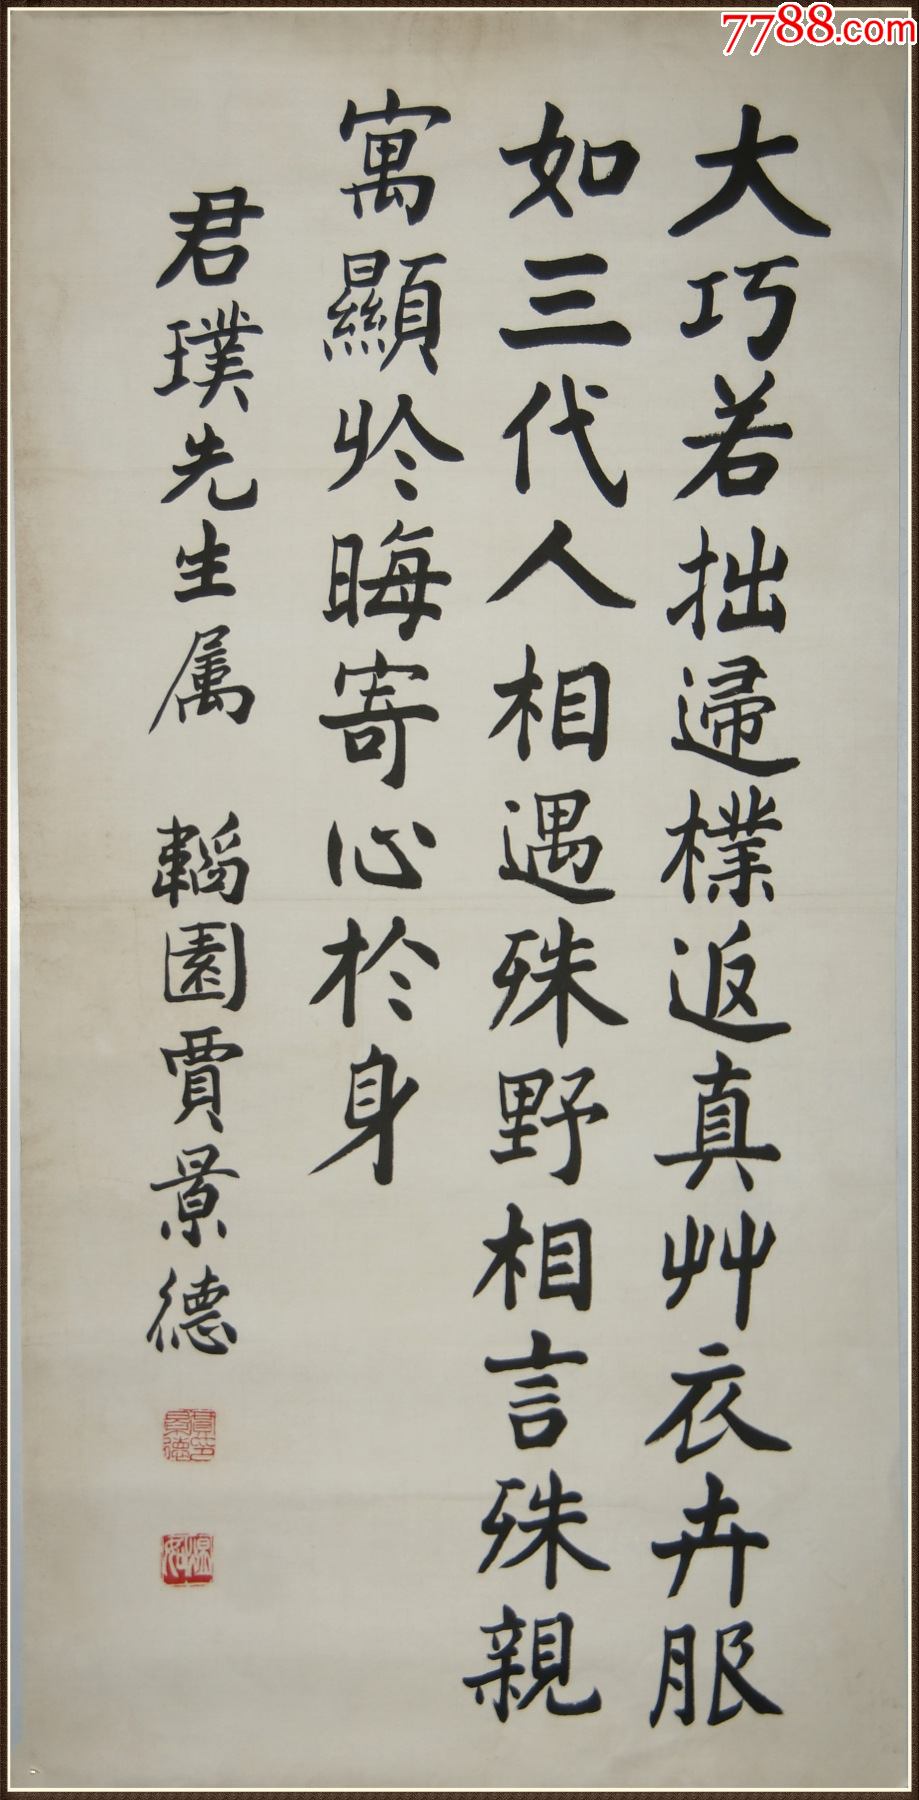 7788.com
大巧若拙遝樸返真艸衣卉服
如三代人相遇殊野相言殊親
寓顯於晦寄心於身
君璞先生属 韜園賈景德
賈景德印